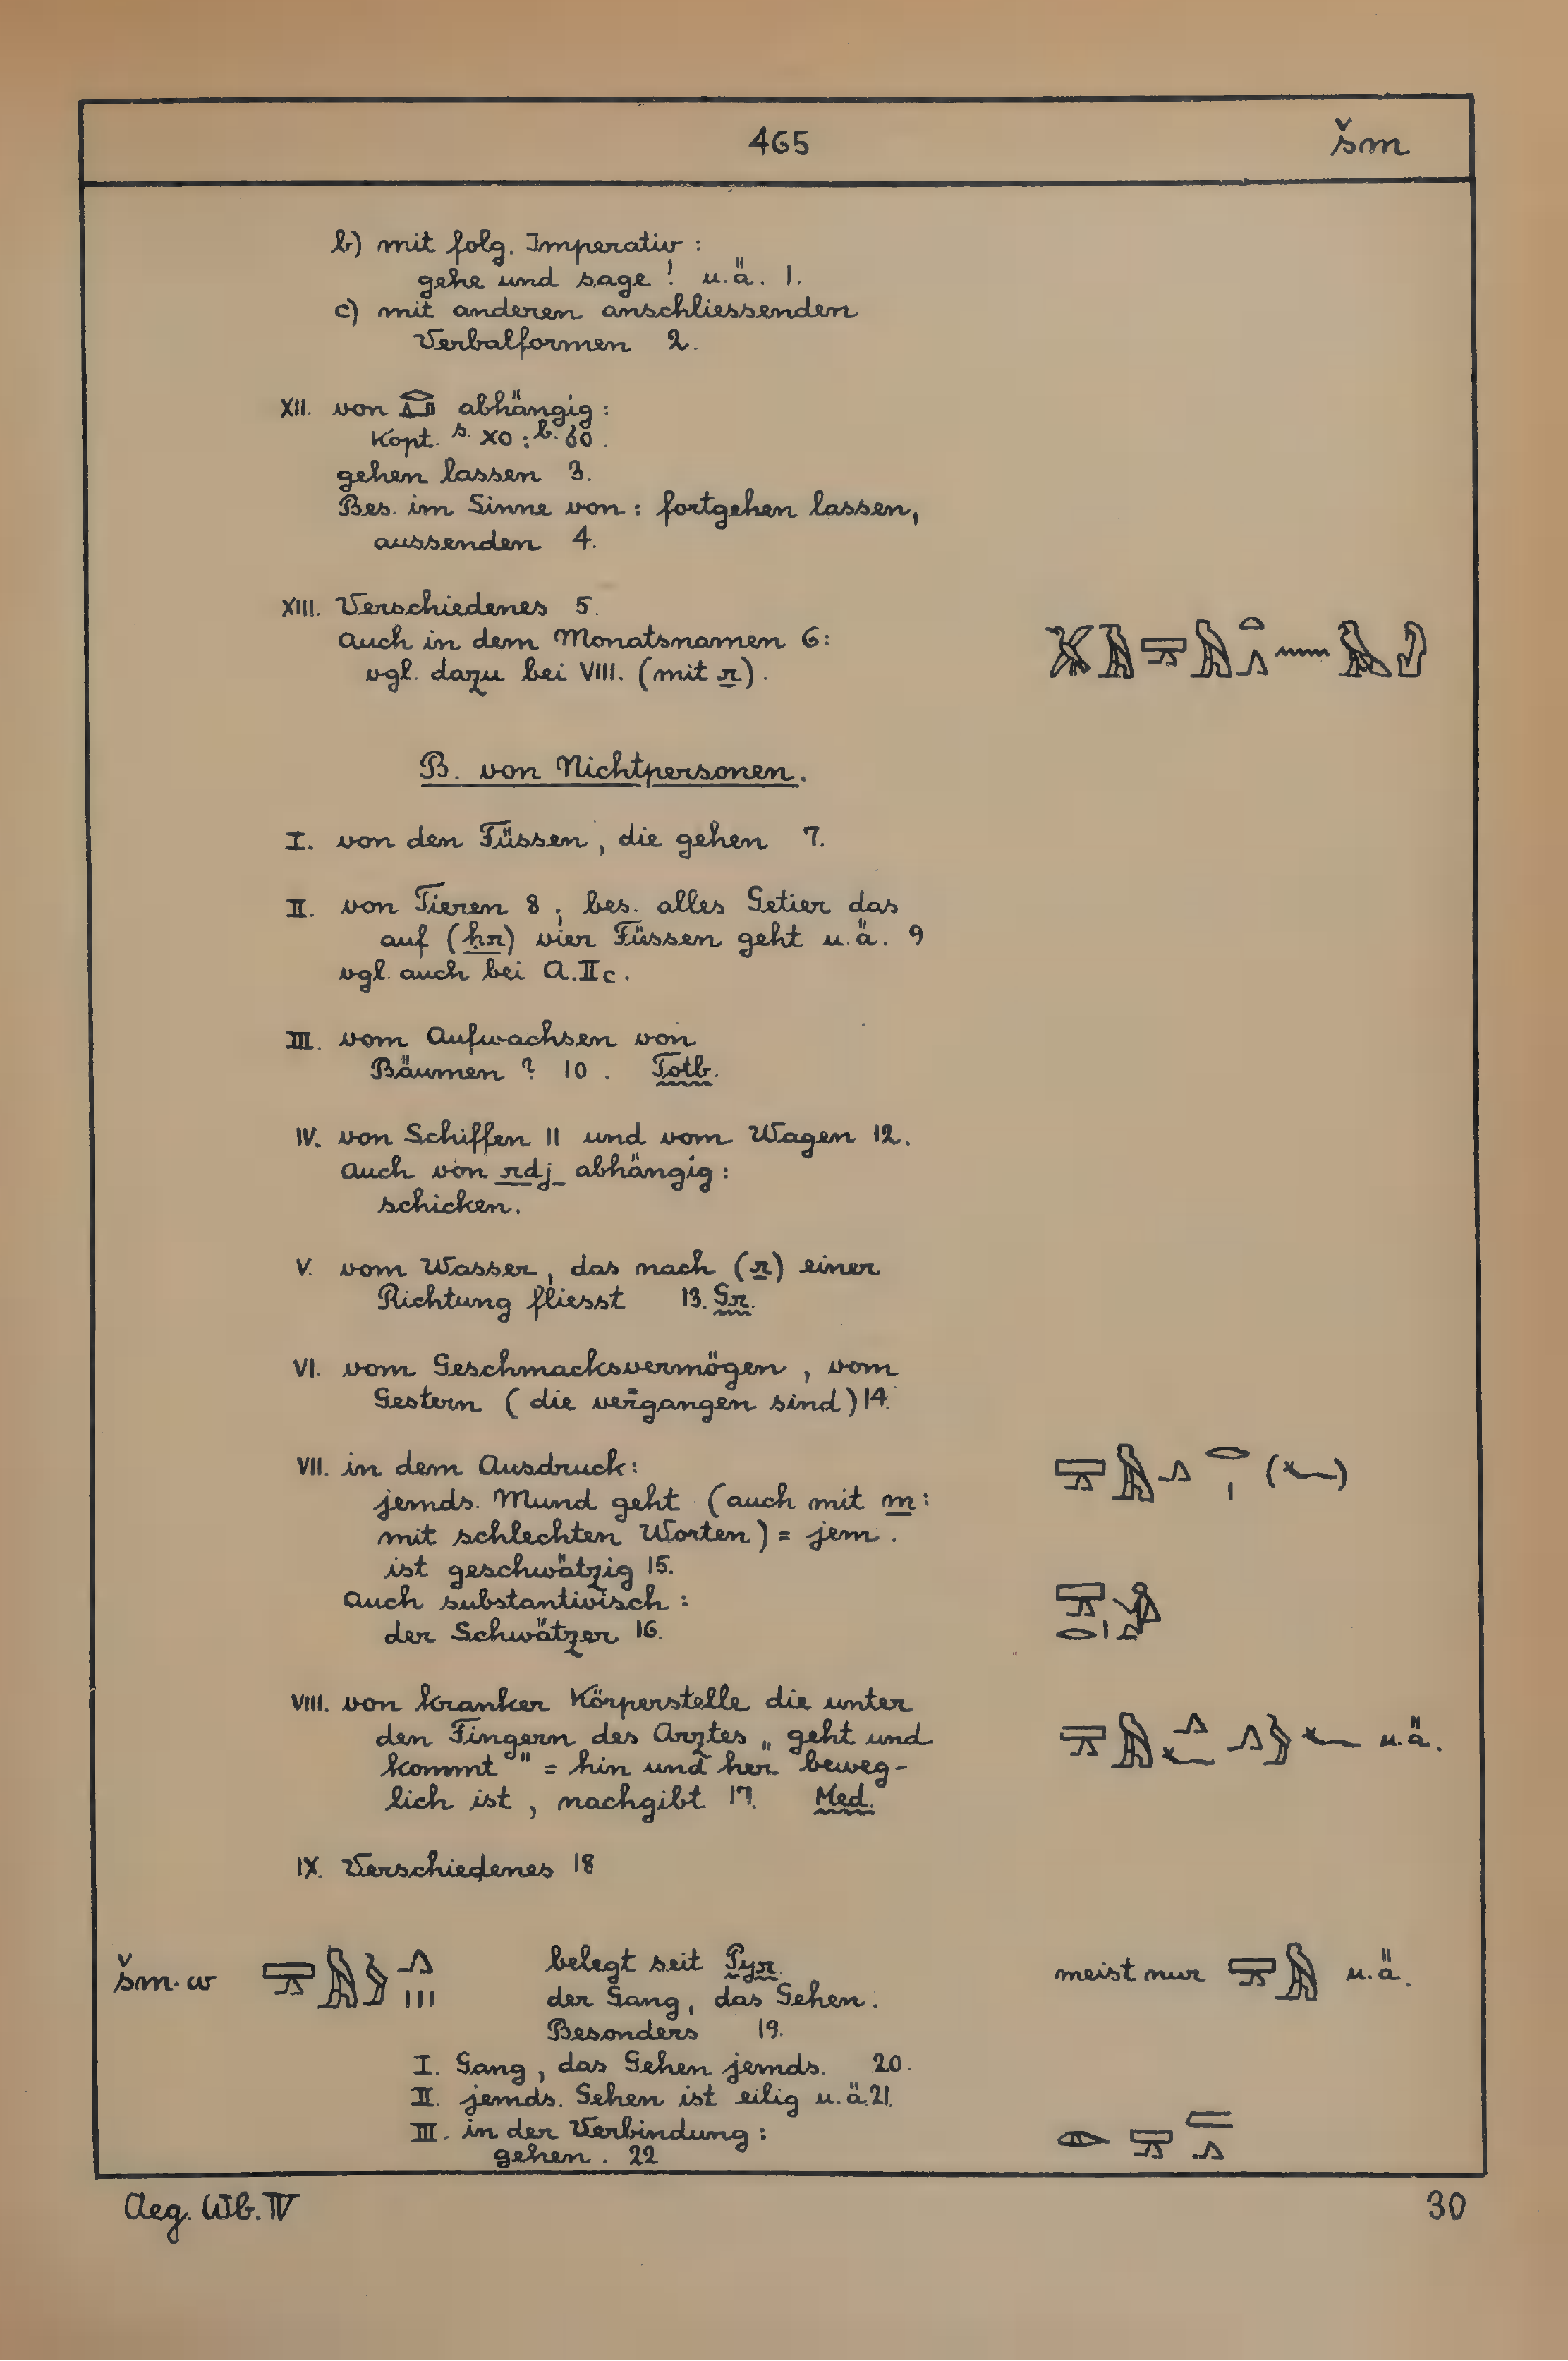 465 šm
b) mit folg. Imperativ :
gehe und sage ! u.ä. 1.
c) mit anderen anschliessenden
Verbalformen 2.
XII. von 𓂋𓂞 abhängig :
Kopt. s. ϫⲟ : b.
gehen lassen 3.
Bes. im Sinne von : fortgehen lassen,
aussenden 4.
XIII. Verschiedenes 5.
Auch in dem Monatsnamen 6:
vgl. dazu bei VIII. (mit r).
B. von Nichtpersonen.
I. von den Füssen, die gehen 7.
II. von Tieren 8 ; bes. alles Getier das
auf (ḥr) vier Füssen geht u.ä. 9
vgl. auch bei A.IIc.
III. vom Aufwachsen von
Bäumen ? 10. Totb.
IV. von Schiffen 11 und vom Wagen 12.
Auch von rdj abhängig :
schicken.
V. vom Wasser, das nach (r) einer
Richtung fliesst 13. Gr.
VI. vom Geschmacksvermögen, vom
Gestern (die vergangen sind) 14.
VII. in dem Ausdruck: 𓈝𓅓𓂻 𓂋𓏤 (𓆑)
jemds. Mund geht (auch mit m :
mit schlechten Worten) = jem.
ist geschwätzig 15.
Auch substantivisch :
der Schwätzer 16. 𓈝𓂋𓏤𓀁
VIII. von kranker Körperstelle die unter
den Fingern des Arztes „geht und 𓈝𓅓𓂻𓆑 𓂻𓅱𓆑 u.ä.
kommt" = hin und her beweg-
lich ist, nachgibt 17. Med.
IX. Verschiedenes 18
šm·w 𓈝𓅓𓅱𓂻𓏥 belegt seit Pyr. meist nur 𓈝𓅓 u.ä.
der Gang, das Gehen.
Besonders 19.
I. Gang, das Gehen jemds. 20.
II. jemds. Gehen ist eilig u.ä. 21.
III. in der Verbindung : 𓁹 𓈝𓐝𓂻
gehen. 22
Aeg. Wb. IV 30